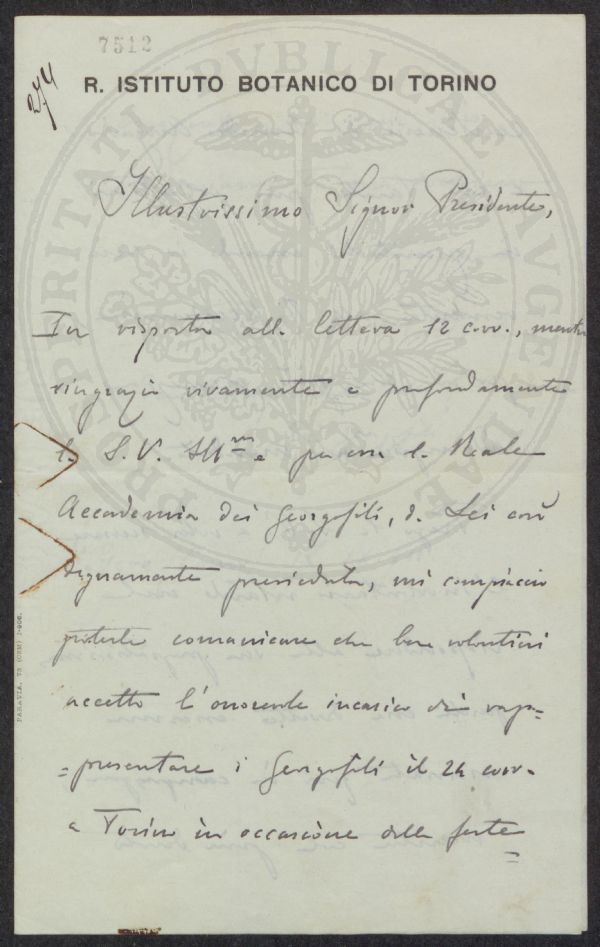 7512
274
R. ISTITUTO BOTANICO DI TORINO
Illustrissimo Signor Presidente,
In risposta alla lettera 12 corr., mentre
ringrazio vivamente e profondamente
la S. V. Ill.ma e per essa la Reale
Accademia dei Georgofili, da Lei così
degnamente presieduta, mi compiaccio
poterle comunicare che ben volentieri
accetto l'onorevole incarico di rap=
=presentare i Georgofili il 24 corr.
a Torino in occasione delle feste
PROSPERITATI PVBLICAE AVGENDAE
PARAVIA, TO (CEM) 2-906.